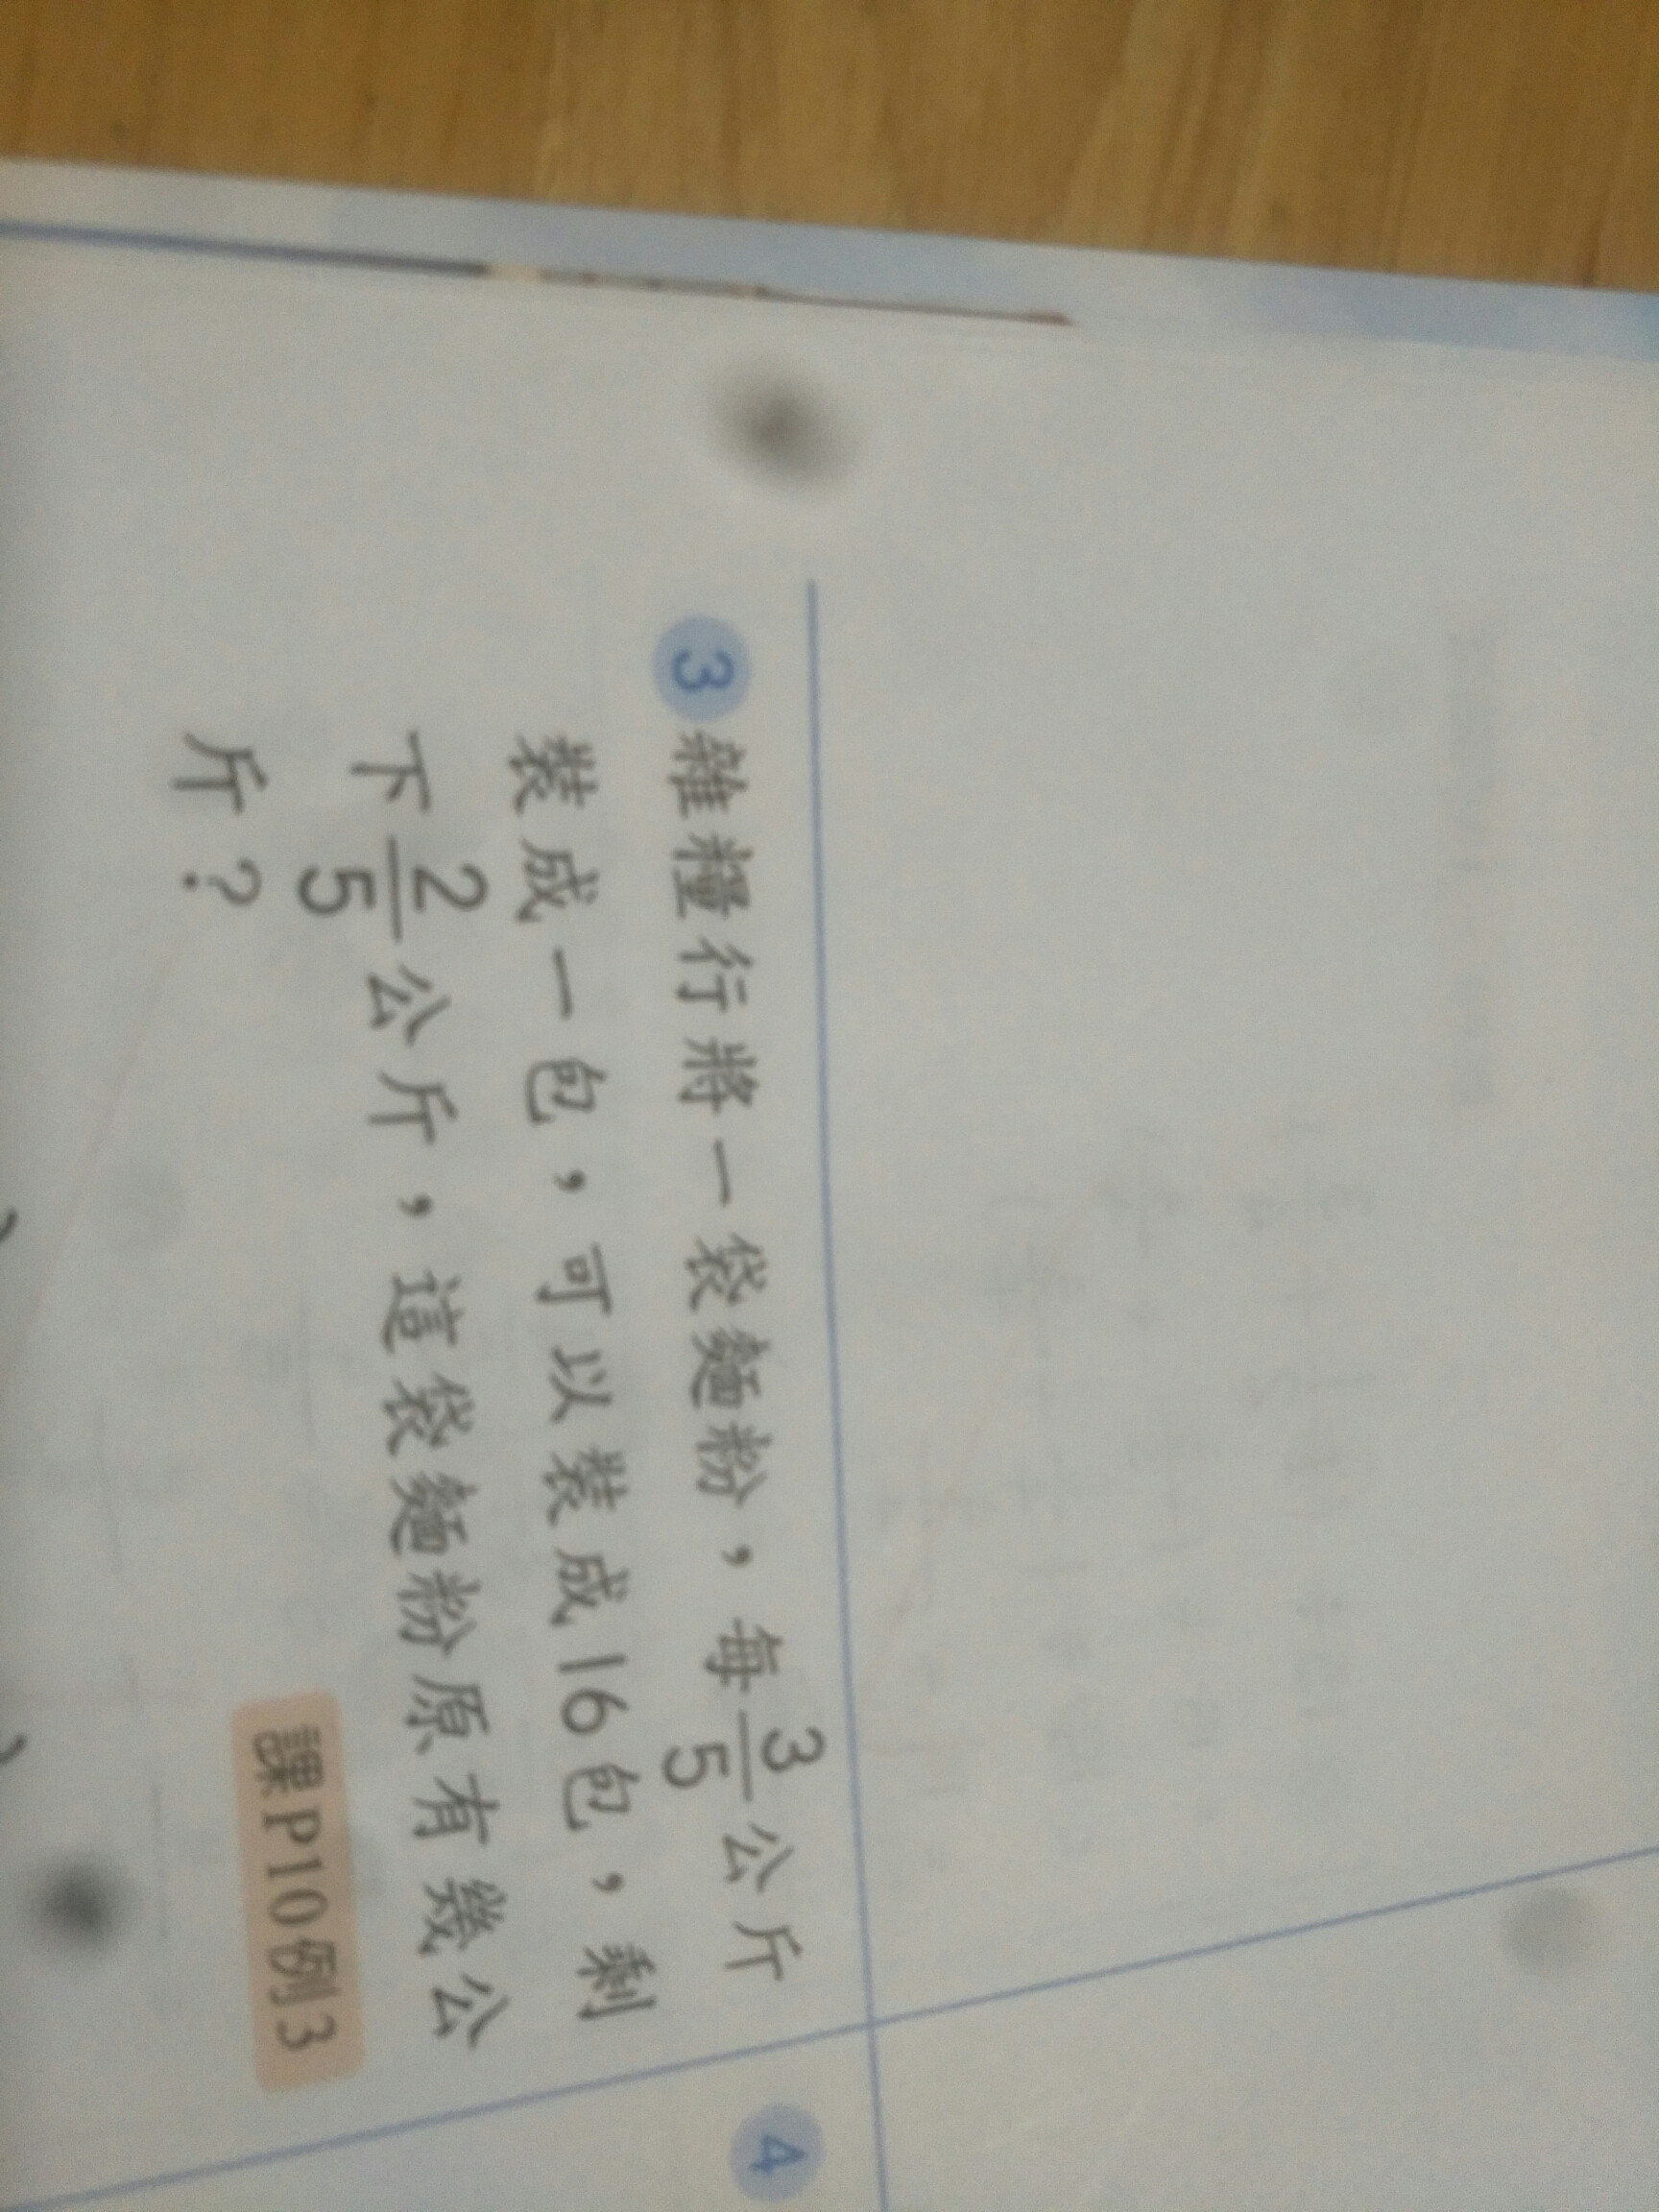 3 雜糧行將一袋麵粉，每3/5公斤
裝成一包，可以裝成16包，剩
下2/5公斤，這袋麵粉原有幾公
斤？
課P10例3
4